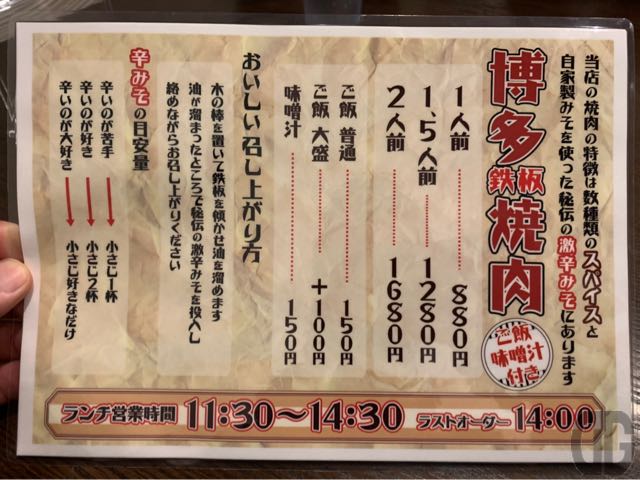 当店の焼肉の特徴は数種類のスパイスと
自家製みそを使った秘伝の激辛みそにあります
博多鉄板焼肉
ご飯
味噌汁
付き
1人前 880円
1、5人前 1280円
2人前 1680円
ご飯 普通 150円
ご飯 大盛 +100円
味噌汁 150円
おいしい召し上がり方
木の棒を置いて鉄板を傾かせ油を溜めます
油が溜まったところで秘伝の激辛みそを投入し
絡めながらお召し上がりください
辛みその目安量
辛いのが苦手→小さじ1杯
辛いのが好き→小さじ2杯
辛いのが大好き→小さじ好きなだけ
ランチ営業時間 11:30〜14:30 ラストオーダー14:00